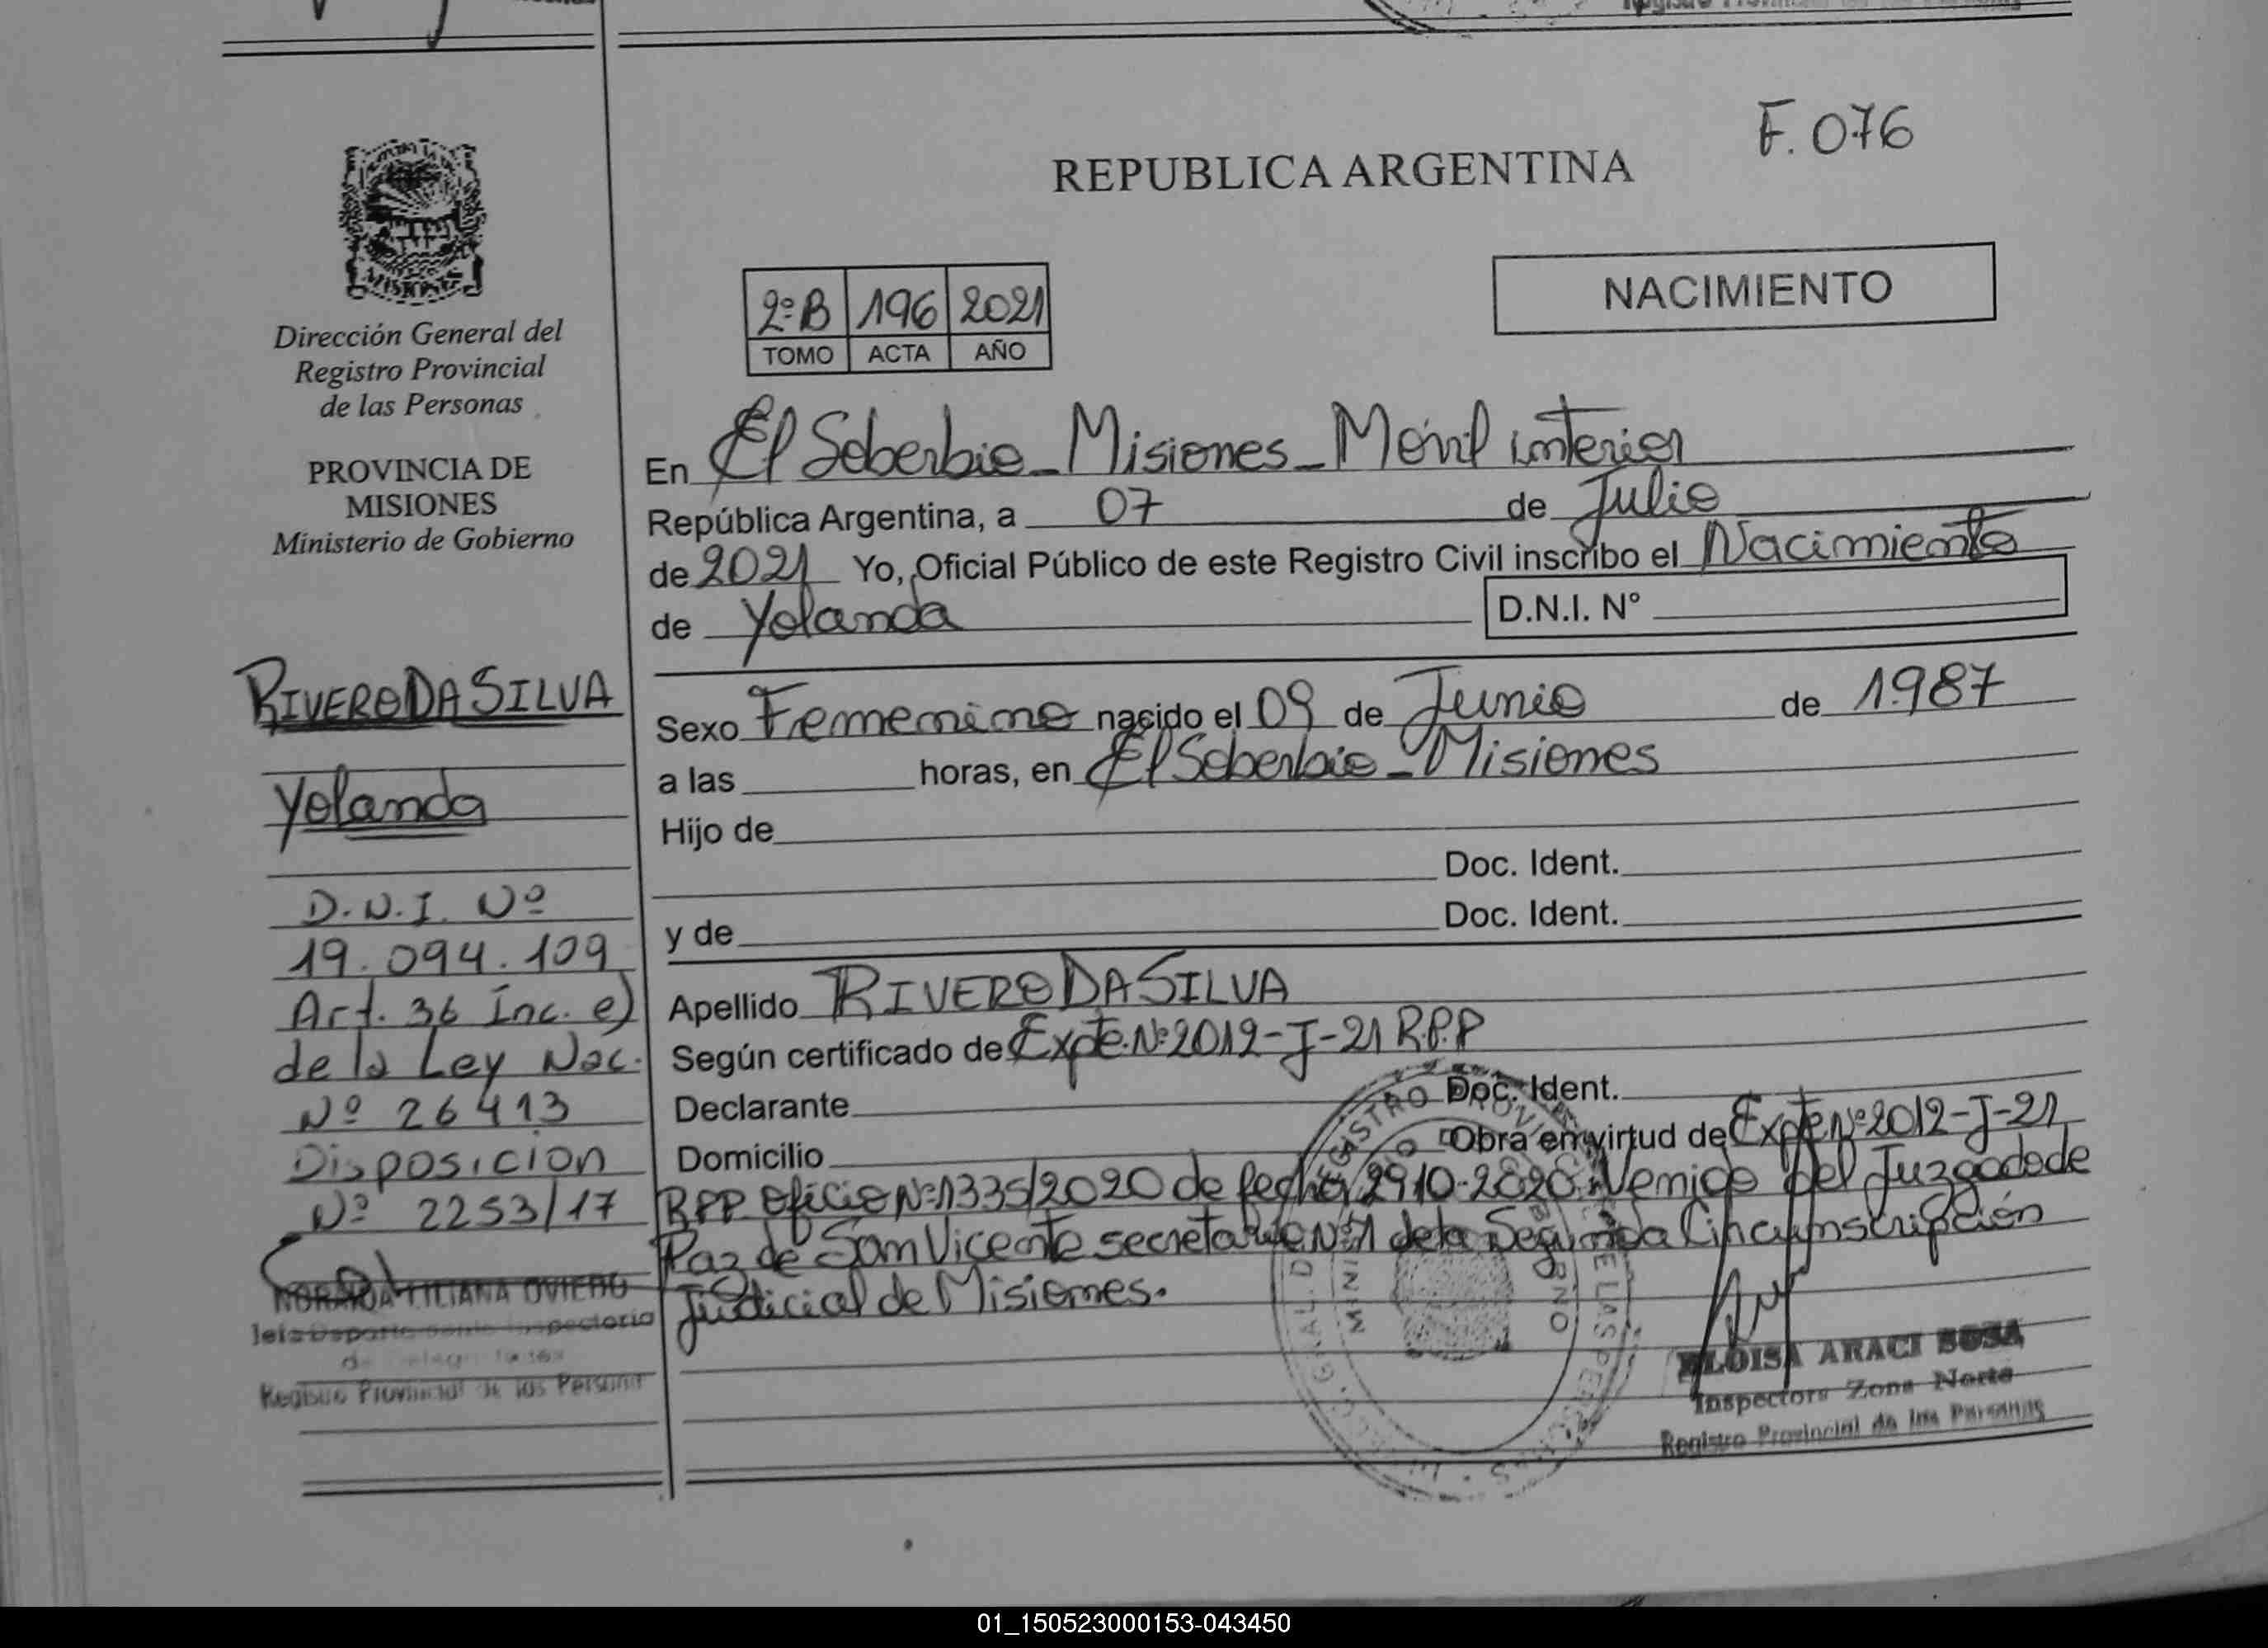 F. 076
REPUBLICA ARGENTINA
NACIMIENTO
2º B 196 2021
TOMO ACTA AÑO
MISIONES
Dirección General del
Registro Provincial
de las Personas
PROVINCIA DE
MISIONES
Ministerio de Gobierno
RIVERO DA SILVA
Yolanda
D.N.I. Nº
19.094.109
Art. 36 Inc. e)
de la Ley Nac.
Nº 26413
Disposicion
Nº 2253/17
LILIANA OVIEDO
Registro Provincial de las Personas
En El Soberbio - Misiones - Móvil interior
República Argentina, a 07 de Julio
de 2021 Yo, Oficial Público de este Registro Civil inscribo el Nacimiento
de Yolanda D.N.I. N°
Sexo Femenino nacido el 09 de Junio de 1.987
a las horas, en El Soberbio - Misiones
Hijo de
Doc. Ident.
y de Doc. Ident.
Apellido RIVERO DA SILVA
Según certificado de Expte. Nº 2012-J-21 R.P.P
Declarante Doc. Ident.
Domicilio Obra en virtud de Expte Nº 2012-J-21
RPP Oficio Nº 1335/2020 de fecha 29-10-2020. Venido del Juzgado de
Paz de San Vicente secretaria Nº 1 de la Segunda Circunscripción
Judicial de Misiones.
ELOISA ARACI SOSA
Inspectora Zona Norte
Registro Provincial de las Personas
01_150523000153-043450